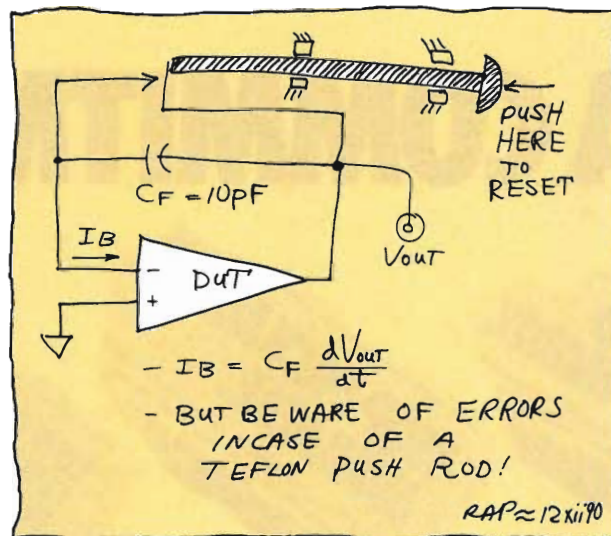 PUSH
HERE
TO
RESET
CF = 10pF
IB
-
+
DUT
VOUT
- IB = CF dVOUT/dt
- BUT BEWARE OF ERRORS
INCASE OF A
TEFLON PUSH ROD!
RAP≈12xii90